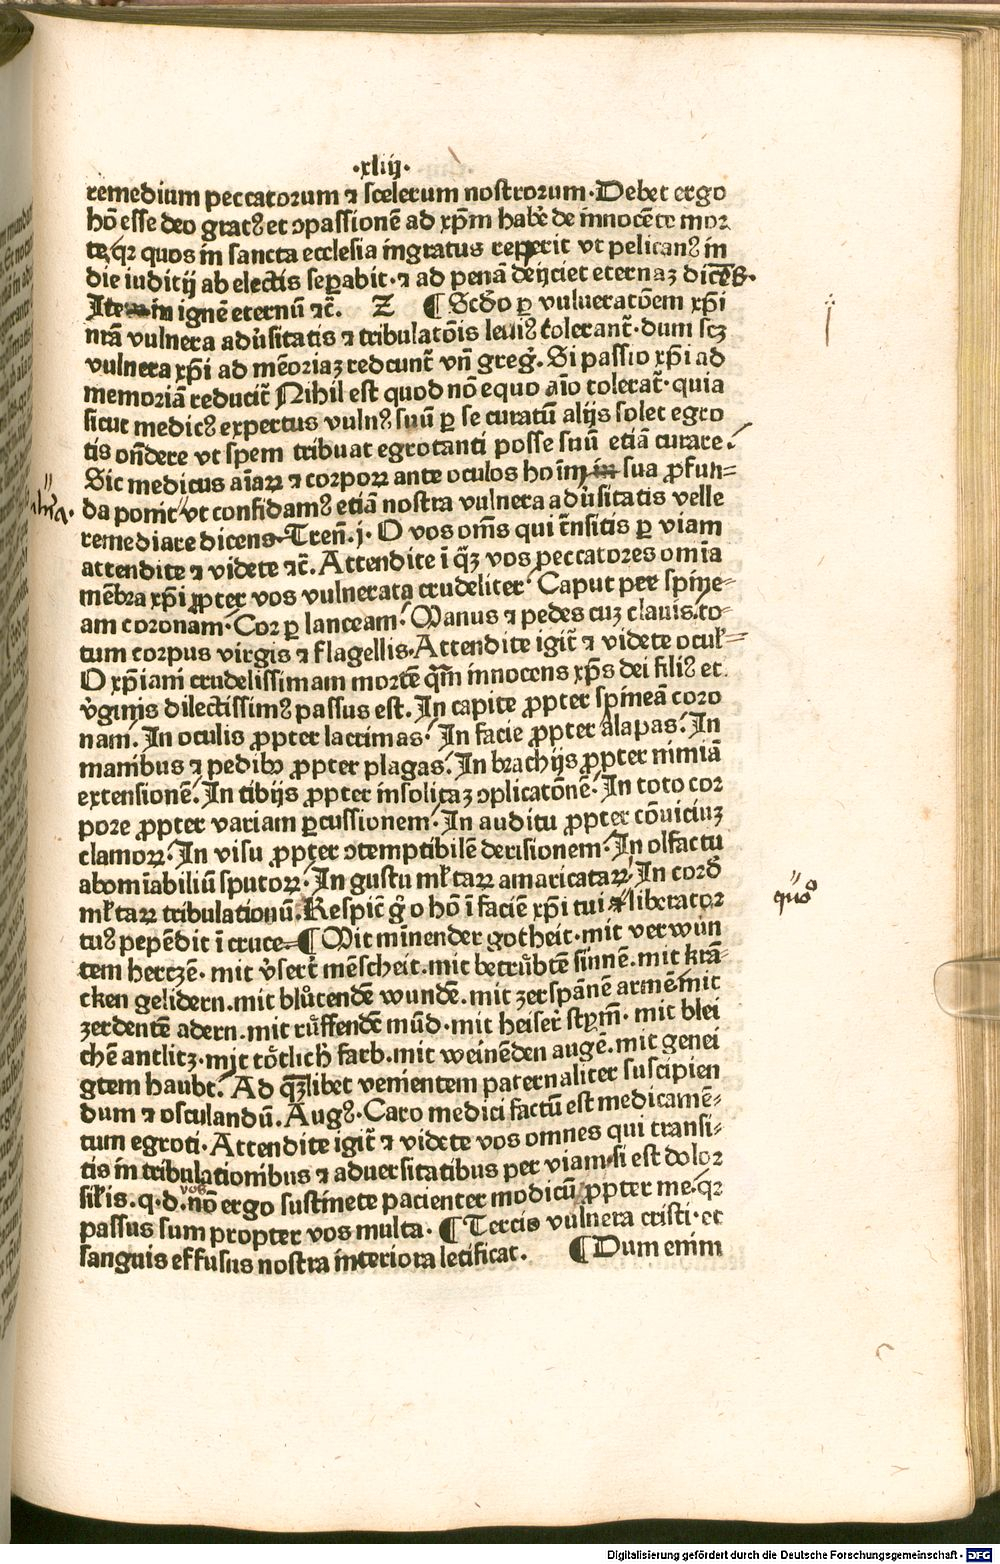 ·xliij·
remedium peccatorum ⁊ scelerum nostrorum. Debet ergo
hõ esse deo gratꝰ et ↄpassionẽ ad xp̃m habẽ de innocẽte mor
te, qꝛ quos in sancta ecclesia ingratus repperit vt pelicanꝰ in
die iuditij ab electis sepabit. ⁊ ad penã deijciet eternaꝫ dicẽs.
Ite in ignẽ eternũ ⁊c̃. Z ¶ Scd̃o ꝑ vulueratõem xp̃i
nr̃ã vulnera adu̇sitatis ⁊ tribulatõis leuiꝰ tolerant̃. dum scꝫ
vulnera xp̃i ad mẽoriaꝫ redcunt̃ vñ greg̃. Si passio xp̃i ad
memoriã reducit̃ Nihil est quod nõ equo aĩo tolerat̃. quia
sicut medicꝰ expertus vulnꝰ suũ ꝑ se curatũ alijs solet egro
tis oñdere vt spem tribuat egrotanti posse suũ etiã curare.
Sic medicus aĩaꝝ ⁊ corpoꝝ ante oculos hoĩm sua ꝓfun=
da ponit vt confidamꝰ etiã nostra vulnera adu̇sitatis velle
remediare dicens Treñ. j. O vos om̃s qui t̃nsitis ꝑ viam
attendite ⁊ videte ⁊c̃. Attendite ĩ q̃ꝫ vos peccatores omĩa
mẽbra xp̃i ꝓpter vos vulnerata crudeliter. Caput per spine=
am coronam. Cor ꝑ lanceam. Manus ⁊ pedes cuꝫ clauis. to=
tum corpus virgis ⁊ flagellis. Attendite igit̃ ⁊ videte ocul̃=
O xp̃iani crudelissimam mortẽ q̃m innocens xp̃s dei filiꝰ et
ṽginis dilectissimꝰ passus est. In capite ꝓpter spineã coro
nam. In oculis ꝓpter lacrimas. In facie ꝓpter alapas. In
manibus ⁊ pedibꝰ ꝓpter plagas. In brachijs ꝓpter nimiã
extensionẽ. In tibijs ꝓpter insolitaꝫ ↄplicatõnẽ. In toto cor
pore ꝓpter variam ꝑcussionem. In auditu ꝓpter cõuiciuꝫ
clamoꝝ. In visu ꝓpter ↄtemptibilẽ derisionem. In olfactu
abomĩabiliũ sputoꝝ. In gustu ml̃taꝝ amaricataꝝ. In cord̃
ml̃taꝝ tribulationũ. Respic̃ g̊ o hõ ĩ faciẽ xp̃i tui liberator
tuꝰ pepẽdit ĩ cruce ¶ Mit minender gotheit. mit verwun
tem hertzẽ. mit v̉sert̃ mẽscheit. mit betrůbtẽ sinnẽ. mit krã=
cken gelidern. mit blůtendẽ wundẽ. mit zerspãnẽ armẽ mit
zerdentẽ adern. mit růffendẽ mũd. mit heiser̃ stym̃. mit blei
chẽ antlitz. mit tötlich̃ farb. mit weinẽden augẽ. mit genei
gtem haubt. Ad qꝫlibet venientem paternaliter suscipien
dum ⁊ osculandũ. Augꝰ. Caro medici factũ est medicamẽ=
tum egroti. Attendite igit̃ ⁊ videte vos omnes qui transi=
tis in tribulationibus ⁊ aduersitatibus per viam. si est dolor
sil̃is. q. d. vos nõ ergo sustinete pacienter modicũ ꝓpter me. qꝛ
passus sum propter vos multa. ¶ Tercio vulnera cristi. et
sanguis effusus nostra interiora letificat. ¶ Dum enim
Digitalisierung gefördert durch die Deutsche Forschungsgemeinschaft - DFG